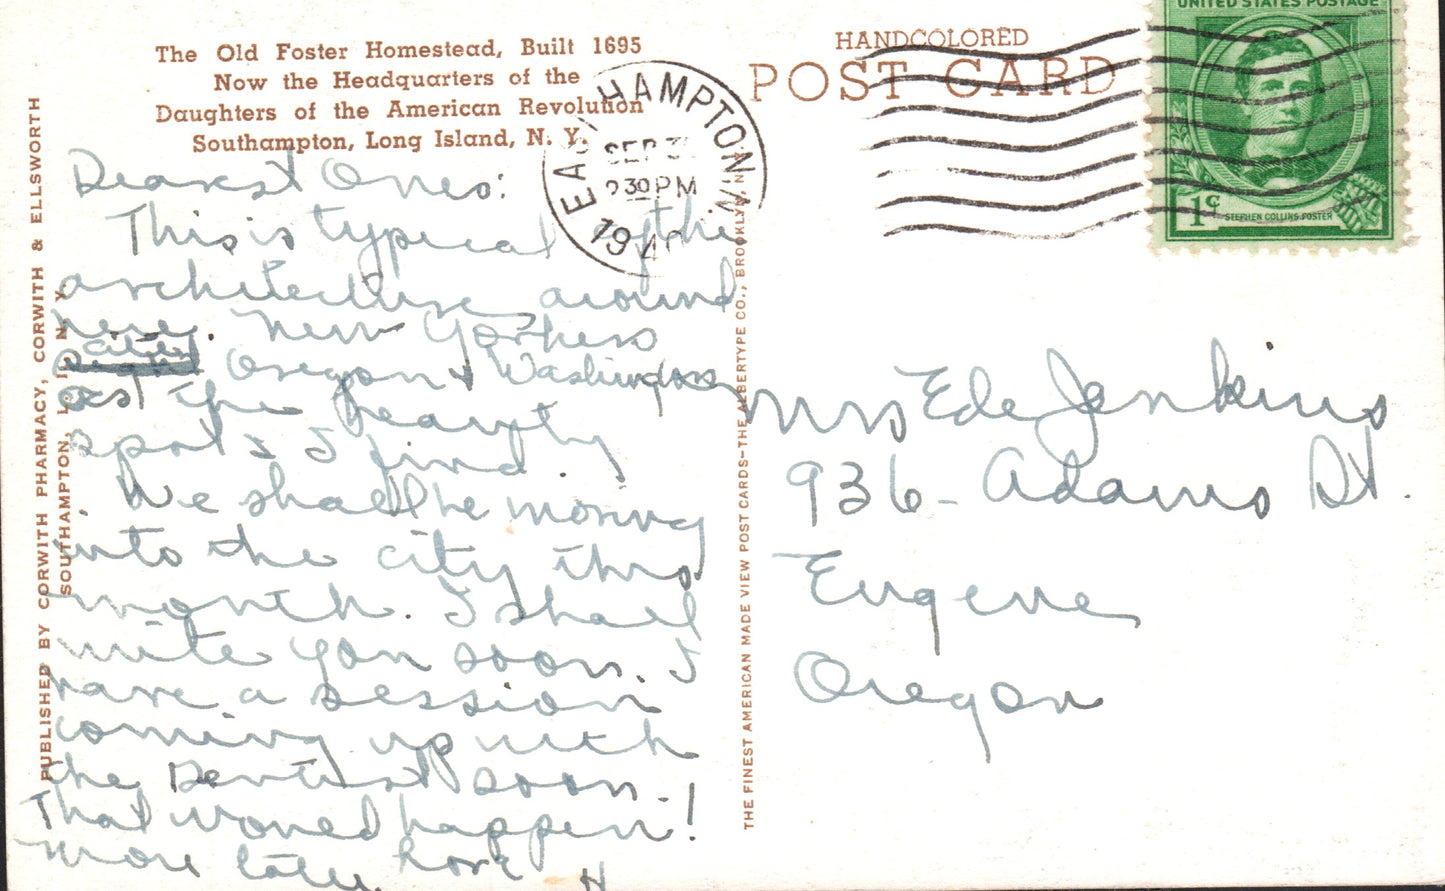 The Old Foster Homestead, Built 1695
Now the Headquarters of the
Daughters of the American Revolution
Southampton, Long Island, N. Y.
HANDCOLORED
POST CARD
UNITED STATES POSTAGE
1¢
STEPHEN COLLINS FOSTER
EAST HAMPTON, N.Y.
SEP 3
2 30 PM
194
Dearest Ones:
This is typical of the
architecture around
here. New Yorkers
cite Oregon & Washington
as the beauty
spots I find.
We shall be moving
into the city this
month. I shall
write you soon. I
have a session
coming up with
the Dentist soon.
That would happen!
More later. Love H
Mrs Ede Jenkins
936 - Adams St.
Eugene
Oregon
PUBLISHED BY CORWITH PHARMACY, CORWITH & ELLSWORTH
SOUTHAMPTON, L. I., N. Y.
THE FINEST AMERICAN MADE VIEW POST CARDS—THE ALBERTYPE CO., BROOKLYN, N. Y.